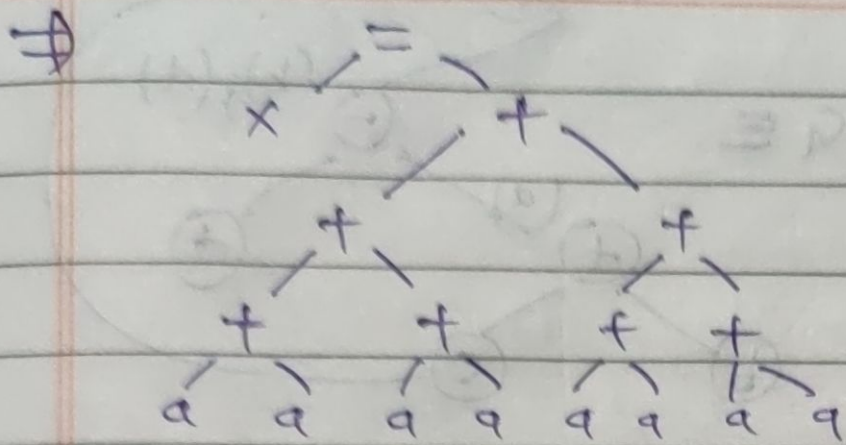 ⇒ =
x +
+ +
+ + + +
a a a a a a a a